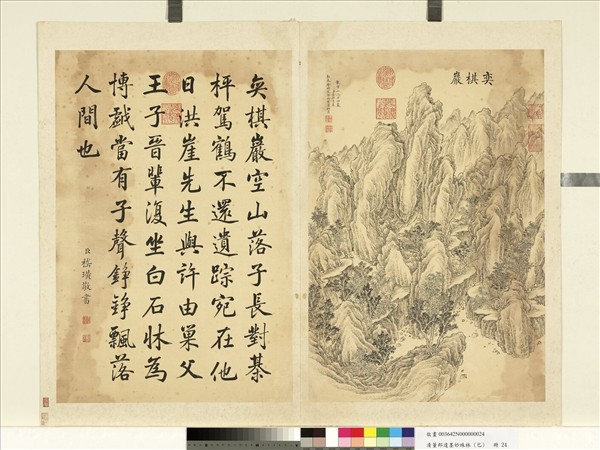 奕棋巖
奕棋巖空山落子長對棊
枰駕鶴不還遺踪宛在他
日洪崖先生與許由巢父
王子晉輩復坐白石牀為
博戲當有子聲錚錚飄落
人間也
臣嵇璜敬書
故畫 003642N000000024
清董邦達墨妙珠林（巳） 冊 24